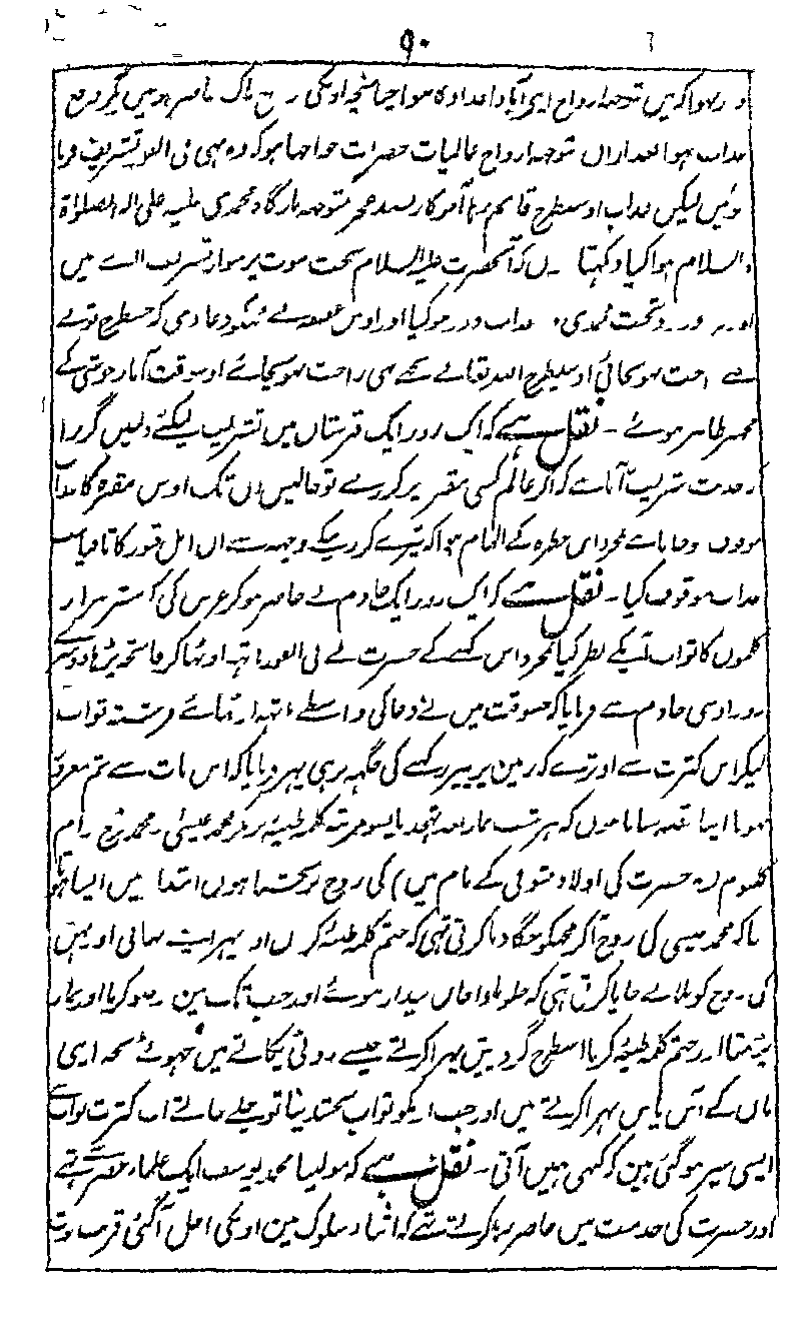 ۹۰
متوجہ ارواح اپنی آباد اجداد کا ہوا چنانچہ اونکی روح پاک حاضر ہوئیں مگر دفع
عذاب ہوا بعد ازاں متوجہ ارواح عالیات حضرات خواجہا ہو کر وہ بھی فی الفور تشریف فرما
ہوئیں لیکن عذاب اوسطرح قائم رہا آخر کار متوجہ بارگاہ محمدی علیہ علی الہ الصلواۃ
والسلام ہوا کیا دیکہتا کہ آنحضرت علیہ السلام تخت پر سوار تشریف لائے ہیں
عذاب دور ہو گیا اور اوس نے مجکو دعا دی کہ جسطرح تونے
راحت پہونچائی اوسیطرح اللہ تعالے تجھے بھی راحت پہونچائے اوسوقت آثار خوشی کے
مجھپر ظاہر ہوئے - نقل ہے کہ ایک روز ایک قبرستان میں تشریف لیگئے دلمیں گزرا
کہ حدیث شریف آیا ہے کہ اگر عالم کسی مقبرہ پر گزرے تو چالیس دن تک اوس مقبرہ کا عذاب
موقوف ہو جاتا ہے بمجرد اس خطرہ کے الہام ہوا کہ تیرے گزرنیکے وجہ سے ان اہل قبور کا تا قیامت
عذاب موقوف کیا - نقل ہے کہ ایک روز ایک خادم نے حاضر ہو کر عرض کی کہ ستر ہزار
کلموں کا ثواب آپکے نظر کیا بمجرد اس کہنے کے حضرت نے فی الفور ہاتہہ اوٹھا کر فاتحہ پڑہا دوسرے
روز اوسی خادم سے فرمایا کہ جسوقت میں نے دعا کی واسطے ہاتہہ اوٹھائے فرشتہ ثواب
لیکر اس کثرت سے اوترے کہ زمین پر پیر رکہنے کی جگہہ نرہی پہر فرمایا کہ اس بات سے تم
کہ ہر شب نماز تہجد پانسو مرتبہ کلمہ طیبہ پڑہکر محمد عیسی - محمد فرخ - ام
کلثوم (یہ حضرت کی اولاد متوفی کے نام ہیں) کی روح کو بخشتا ہوں ابتدا میں ایسا ہوتا
تہا کہ محمد عیسی کی روح آ کر مجھکو جگا دیا کرتی تھی کہ ختم کلمہ طیبہ کروں اور پہر اپنے بھائی اور بہن
کی روح کو بلانے جایا کرتی تہی کہ چلو باوا جان بیدار ہوئے اور جب تک میں وضو کرتا اور نماز
پڑہتا اور ختم کلمہ طیبہ کرتا اسطرح گرد میں پہرا کرتے جیسے روٹی پکاتے میں چھوٹے بچہ اپنی
ماں کے آس پاس پہرا کرتے ہیں اور جب اونکو ثواب بخشدیتا تو چلے جاتے اب کثرت ثواب سے
ایسی سیر ہو گئی ہیں کہ کبھی نہیں آتی - نقل ہے کہ مولینا محمد یوسف ایک علماء عصر سے تہے
اور حضرت کی خدمت میں حاضر رہا کرتے تہے کہ اثناء سلوک میں اونکی اجل آگئی قریب موت